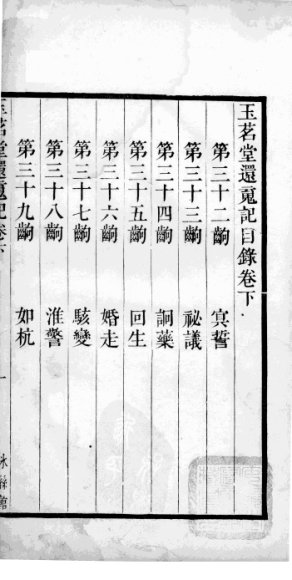 玉茗堂還䰟記目錄卷下
第三十二齣 冥誓
第三十三齣 祕議
第三十四齣 詗藥
第三十五齣 回生
第三十六齣 婚走
第三十七齣 駭變
第三十八齣 淮警
第三十九齣 如杭
玉茗堂還䰟記卷下 一